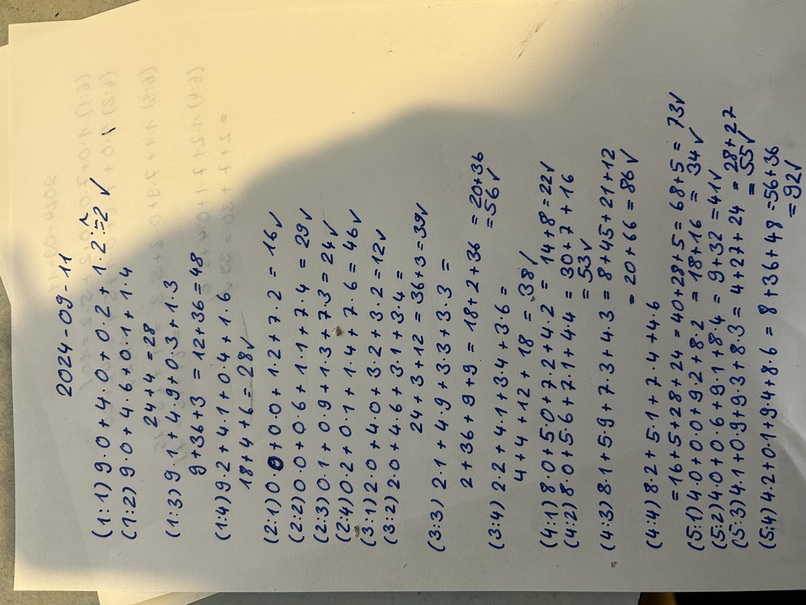 2024-09-11
(1:1) 9·0+4·0+0·2+1·2=2 ✓
(1:2) 9·0+4·6+0·1+1·4
24+4=28
(1:3) 9·1+4·9+0·3+1·3
9+36+3=12+36=48
(1:4) 9·2+4·1+0·4+1·6
18+4+6=28✓
(2:1) 0·0+0·0+1·2+7·2=16✓
(2:2) 0·0+0·6+1·1+7·4=29✓
(2:3) 0·1+0·9+1·3+7·3=24✓
(2:4) 0·2+0·1+1·4+7·6=46✓
(3:1) 2·0+4·0+3·2+3·2=12✓
(3:2) 2·0+4·6+3·1+3·4=
24+3+12=36+3=39✓
(3:3) 2·1+4·9+3·3+3·3=
2+36+9+9=18+2+36=20+36
=56✓
(3:4) 2·2+4·1+3·4+3·6=
4+4+12+18=38✓
(4:1) 8·0+5·0+7·2+4·2=14+8=22✓
(4:2) 8·0+5·6+7·1+4·4=30+7+16
=53✓
(4:3) 8·1+5·9+7·3+4·3=8+45+21+12
=20+66=86✓
(4:4) 8·2+5·1+7·4+4·6
=16+5+28+24=40+28+5=68+5=73✓
(5:1) 4·0+0·0+9·2+8·2=18+16=34✓
(5:2) 4·0+0·6+9·1+8·4=9+32=41✓
(5:3) 4·1+0·9+9·3+8·3=4+27+24=28+27
=55✓
(5:4) 4·2+0·1+9·4+8·6=8+36+48=56+36
=92✓